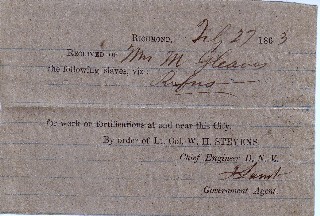 RICHMOND, Feb 27 1863
RECEIVED OF Mrs M Gleaves
the following slaves, viz:
Rufus
for work on fortifications at and near this City,
By order of Lt. Col. W. H. STEVENS
Chief Engineer D. N. V.
Government Agent